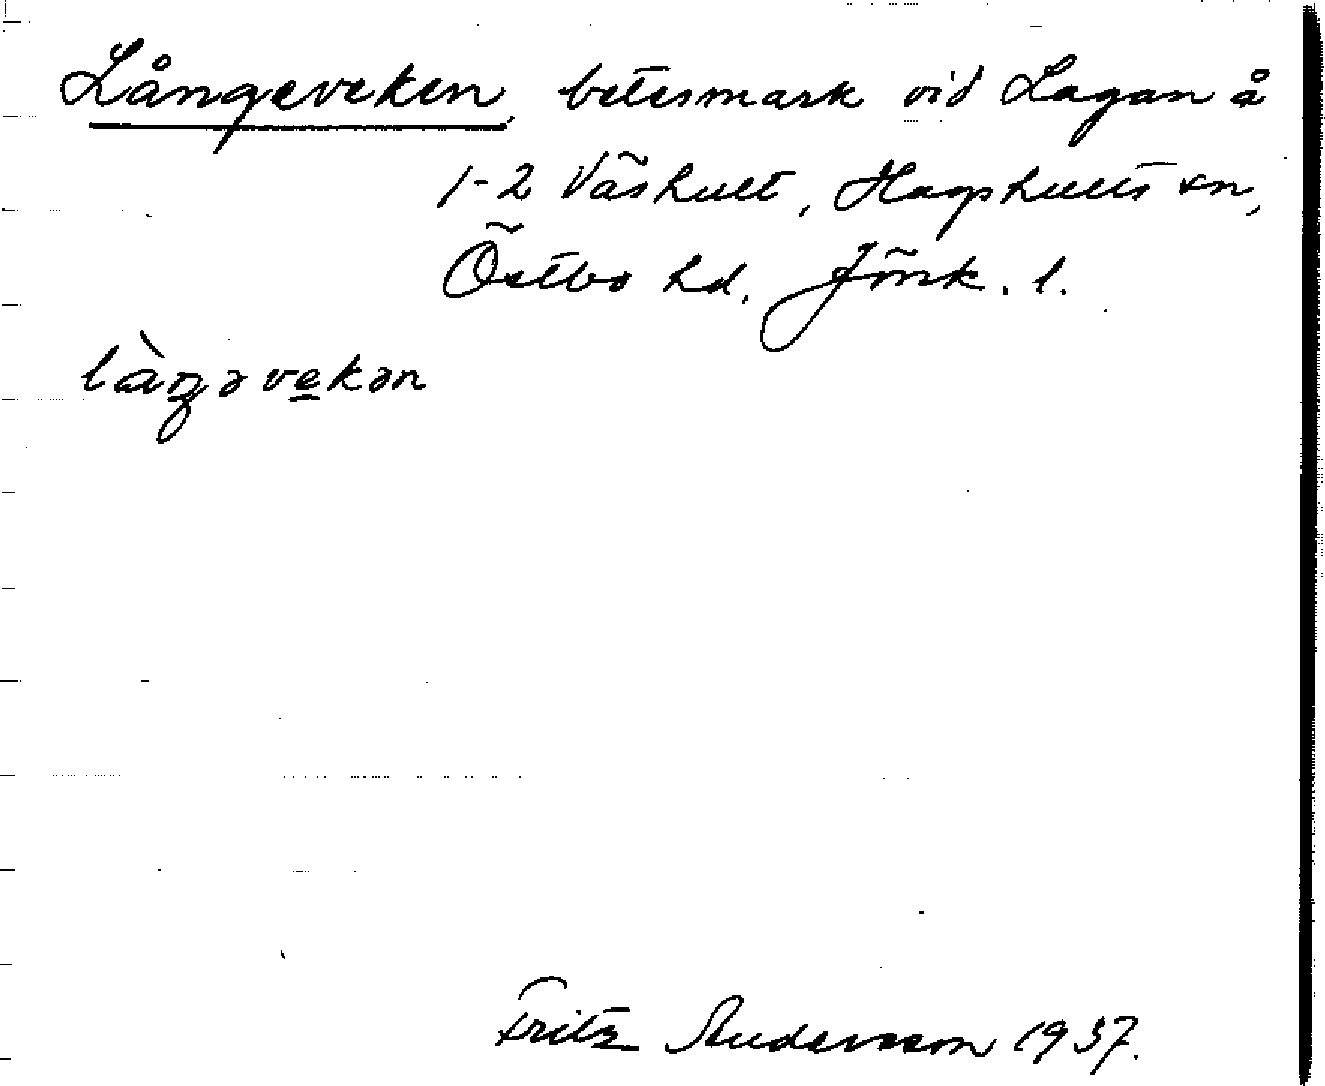 Långeveken, betesmark vid Lagan å
1-2 Väshult, Hagshults sn,
Östbo hd. Jönk. l.
làŋəvekən
Fritz Andersson 1937.